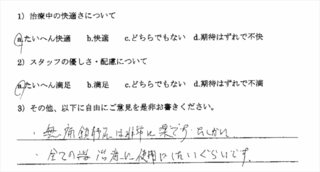 1）治療中の快適さについて
a.たいへん快適 b.快適 c.どちらでもない d.期待はずれで不快
2）スタッフの優しさ・配慮について
a.たいへん満足 b.満足 c.どちらでもない d.期待はずれで不満
3）その他、以下に自由にご意見を是非お書きください。
・無痛鎮静は非常に楽です。
・全ての 治療に使用したいぐらいです。